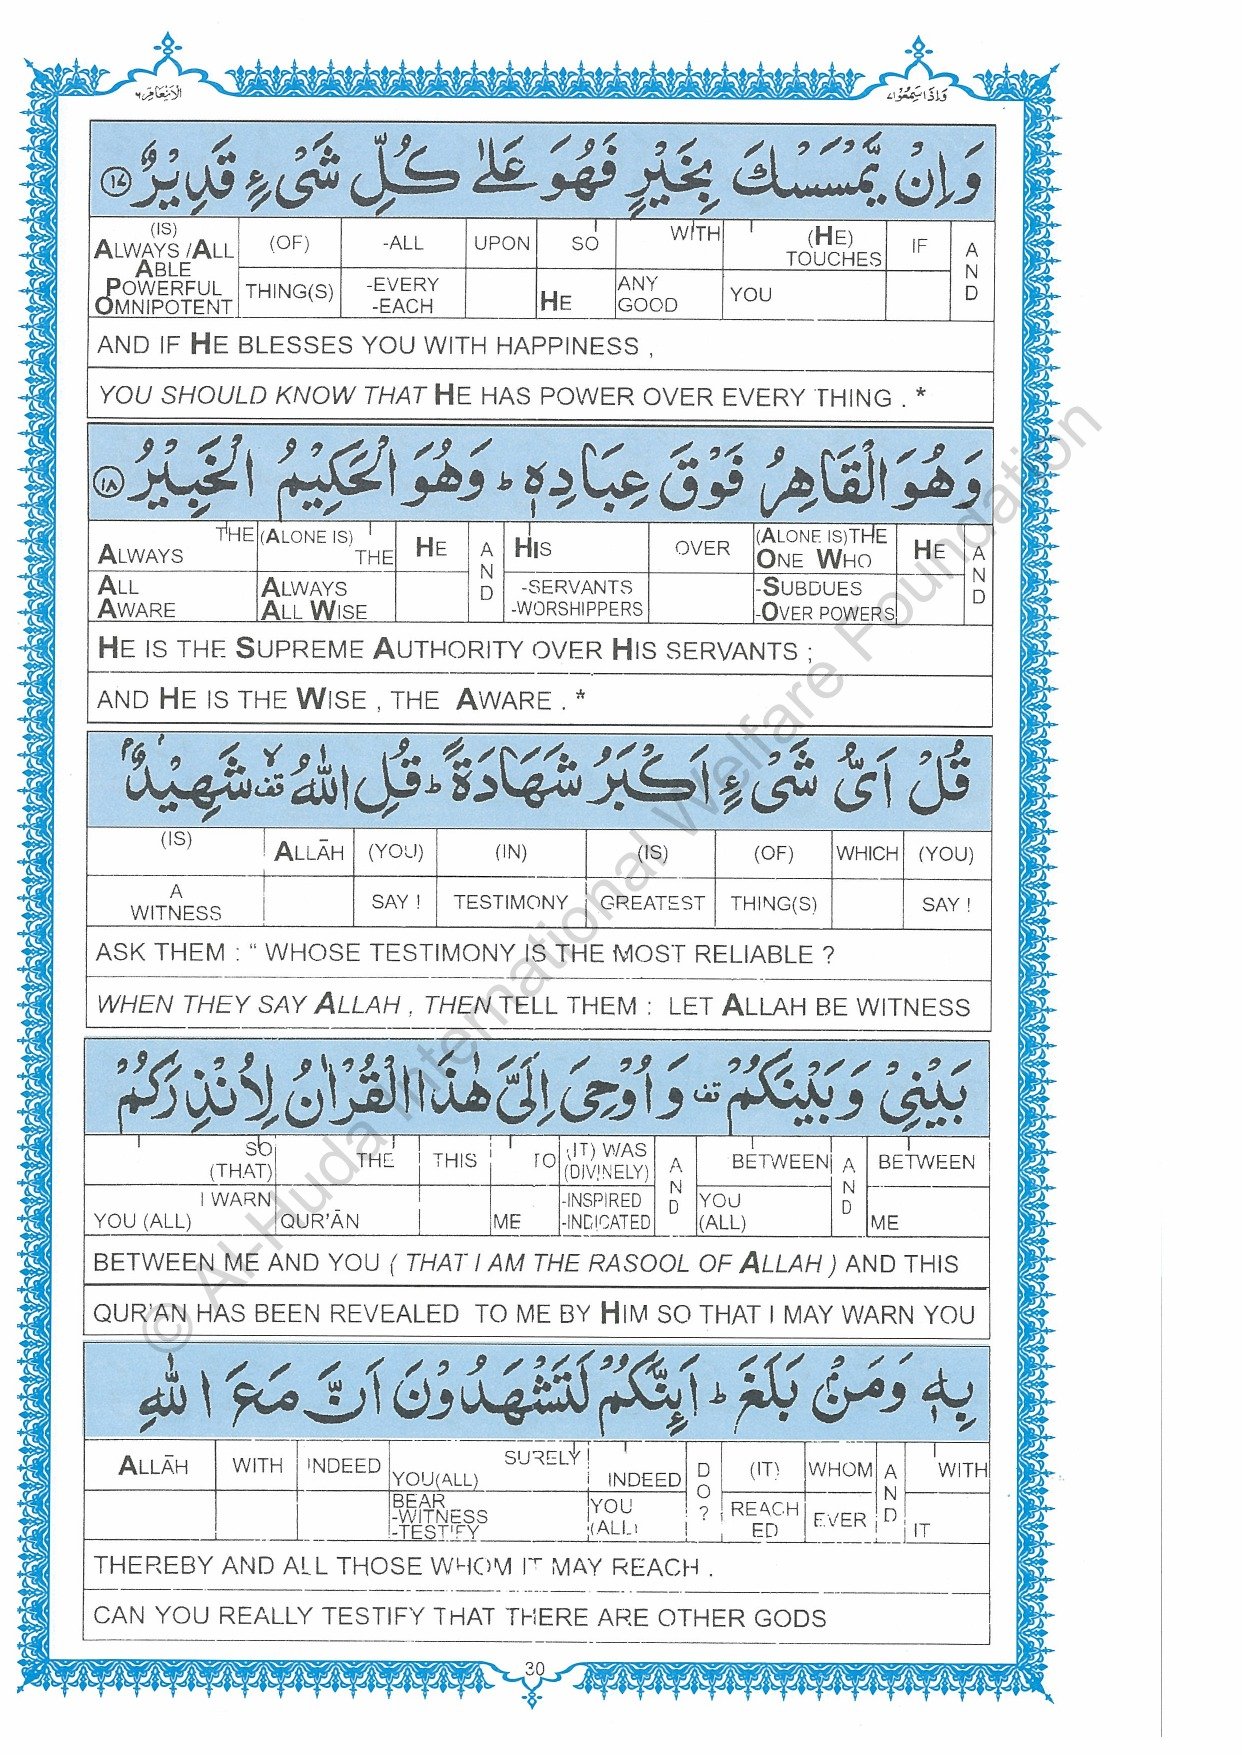 الانعام ٦
واذا سمعوا ٧
وَاِنْ يَّمْسَسْكَ بِخَيْرٍ فَهُوَ عَلٰى كُلِّ شَىْءٍ قَدِيْرٌ ۝١٧
(IS) ALWAYS /ALL ABLE POWERFUL OMNIPOTENT | (OF) THING(S) | -ALL -EVERY -EACH | UPON | SO HE | WITH ANY GOOD | (HE) TOUCHES YOU | IF | AND
AND IF HE BLESSES YOU WITH HAPPINESS ,
YOU SHOULD KNOW THAT HE HAS POWER OVER EVERY THING . *
وَهُوَ الْقَاهِرُ فَوْقَ عِبَادِهٖ ؕ وَهُوَ الْحَكِيْمُ الْخَبِيْرُ ۝١٨
THE ALWAYS ALL AWARE | (ALONE IS) THE ALWAYS ALL WISE | HE | AND | HIS -SERVANTS -WORSHIPPERS | OVER | (ALONE IS)THE ONE WHO -SUBDUES -OVER POWERS | HE | AND
HE IS THE SUPREME AUTHORITY OVER HIS SERVANTS ;
AND HE IS THE WISE , THE AWARE . *
قُلْ اَىُّ شَىْءٍ اَكْبَرُ شَهَادَةً ؕ قُلِ اللّٰهُ قف شَهِيْدٌۢ
(IS) A WITNESS | ALLĀH | (YOU) SAY ! | (IN) TESTIMONY | (IS) GREATEST | (OF) THING(S) | WHICH | (YOU) SAY !
ASK THEM : “ WHOSE TESTIMONY IS THE MOST RELIABLE ?
WHEN THEY SAY ALLAH , THEN TELL THEM : LET ALLAH BE WITNESS
بَيْنِىْ وَبَيْنَكُمْ قف وَاُوْحِىَ اِلَىَّ هٰذَا الْقُرْاٰنُ لِاُنْذِرَكُمْ
SO (THAT) I WARN YOU (ALL) | THE QUR’ĀN | THIS | TO ME | (IT) WAS (DIVINELY) -INSPIRED -INDICATED | AND | BETWEEN YOU (ALL) | AND | BETWEEN ME
BETWEEN ME AND YOU ( THAT I AM THE RASOOL OF ALLAH ) AND THIS
QUR’AN HAS BEEN REVEALED TO ME BY HIM SO THAT I MAY WARN YOU
بِهٖ وَمَنْۢ بَلَغَ ؕ اَئِنَّكُمْ لَتَشْهَدُوْنَ اَنَّ مَعَ اللّٰهِ
ALLĀH | WITH | INDEED | SURELY YOU(ALL) BEAR -WITNESS -TESTIFY | INDEED YOU (ALL) | DO? | (IT) REACHED | WHOM EVER | AND | WITH IT
THEREBY AND ALL THOSE WHOM IT MAY REACH .
CAN YOU REALLY TESTIFY THAT THERE ARE OTHER GODS
30
© Al-Huda International Welfare Foundation